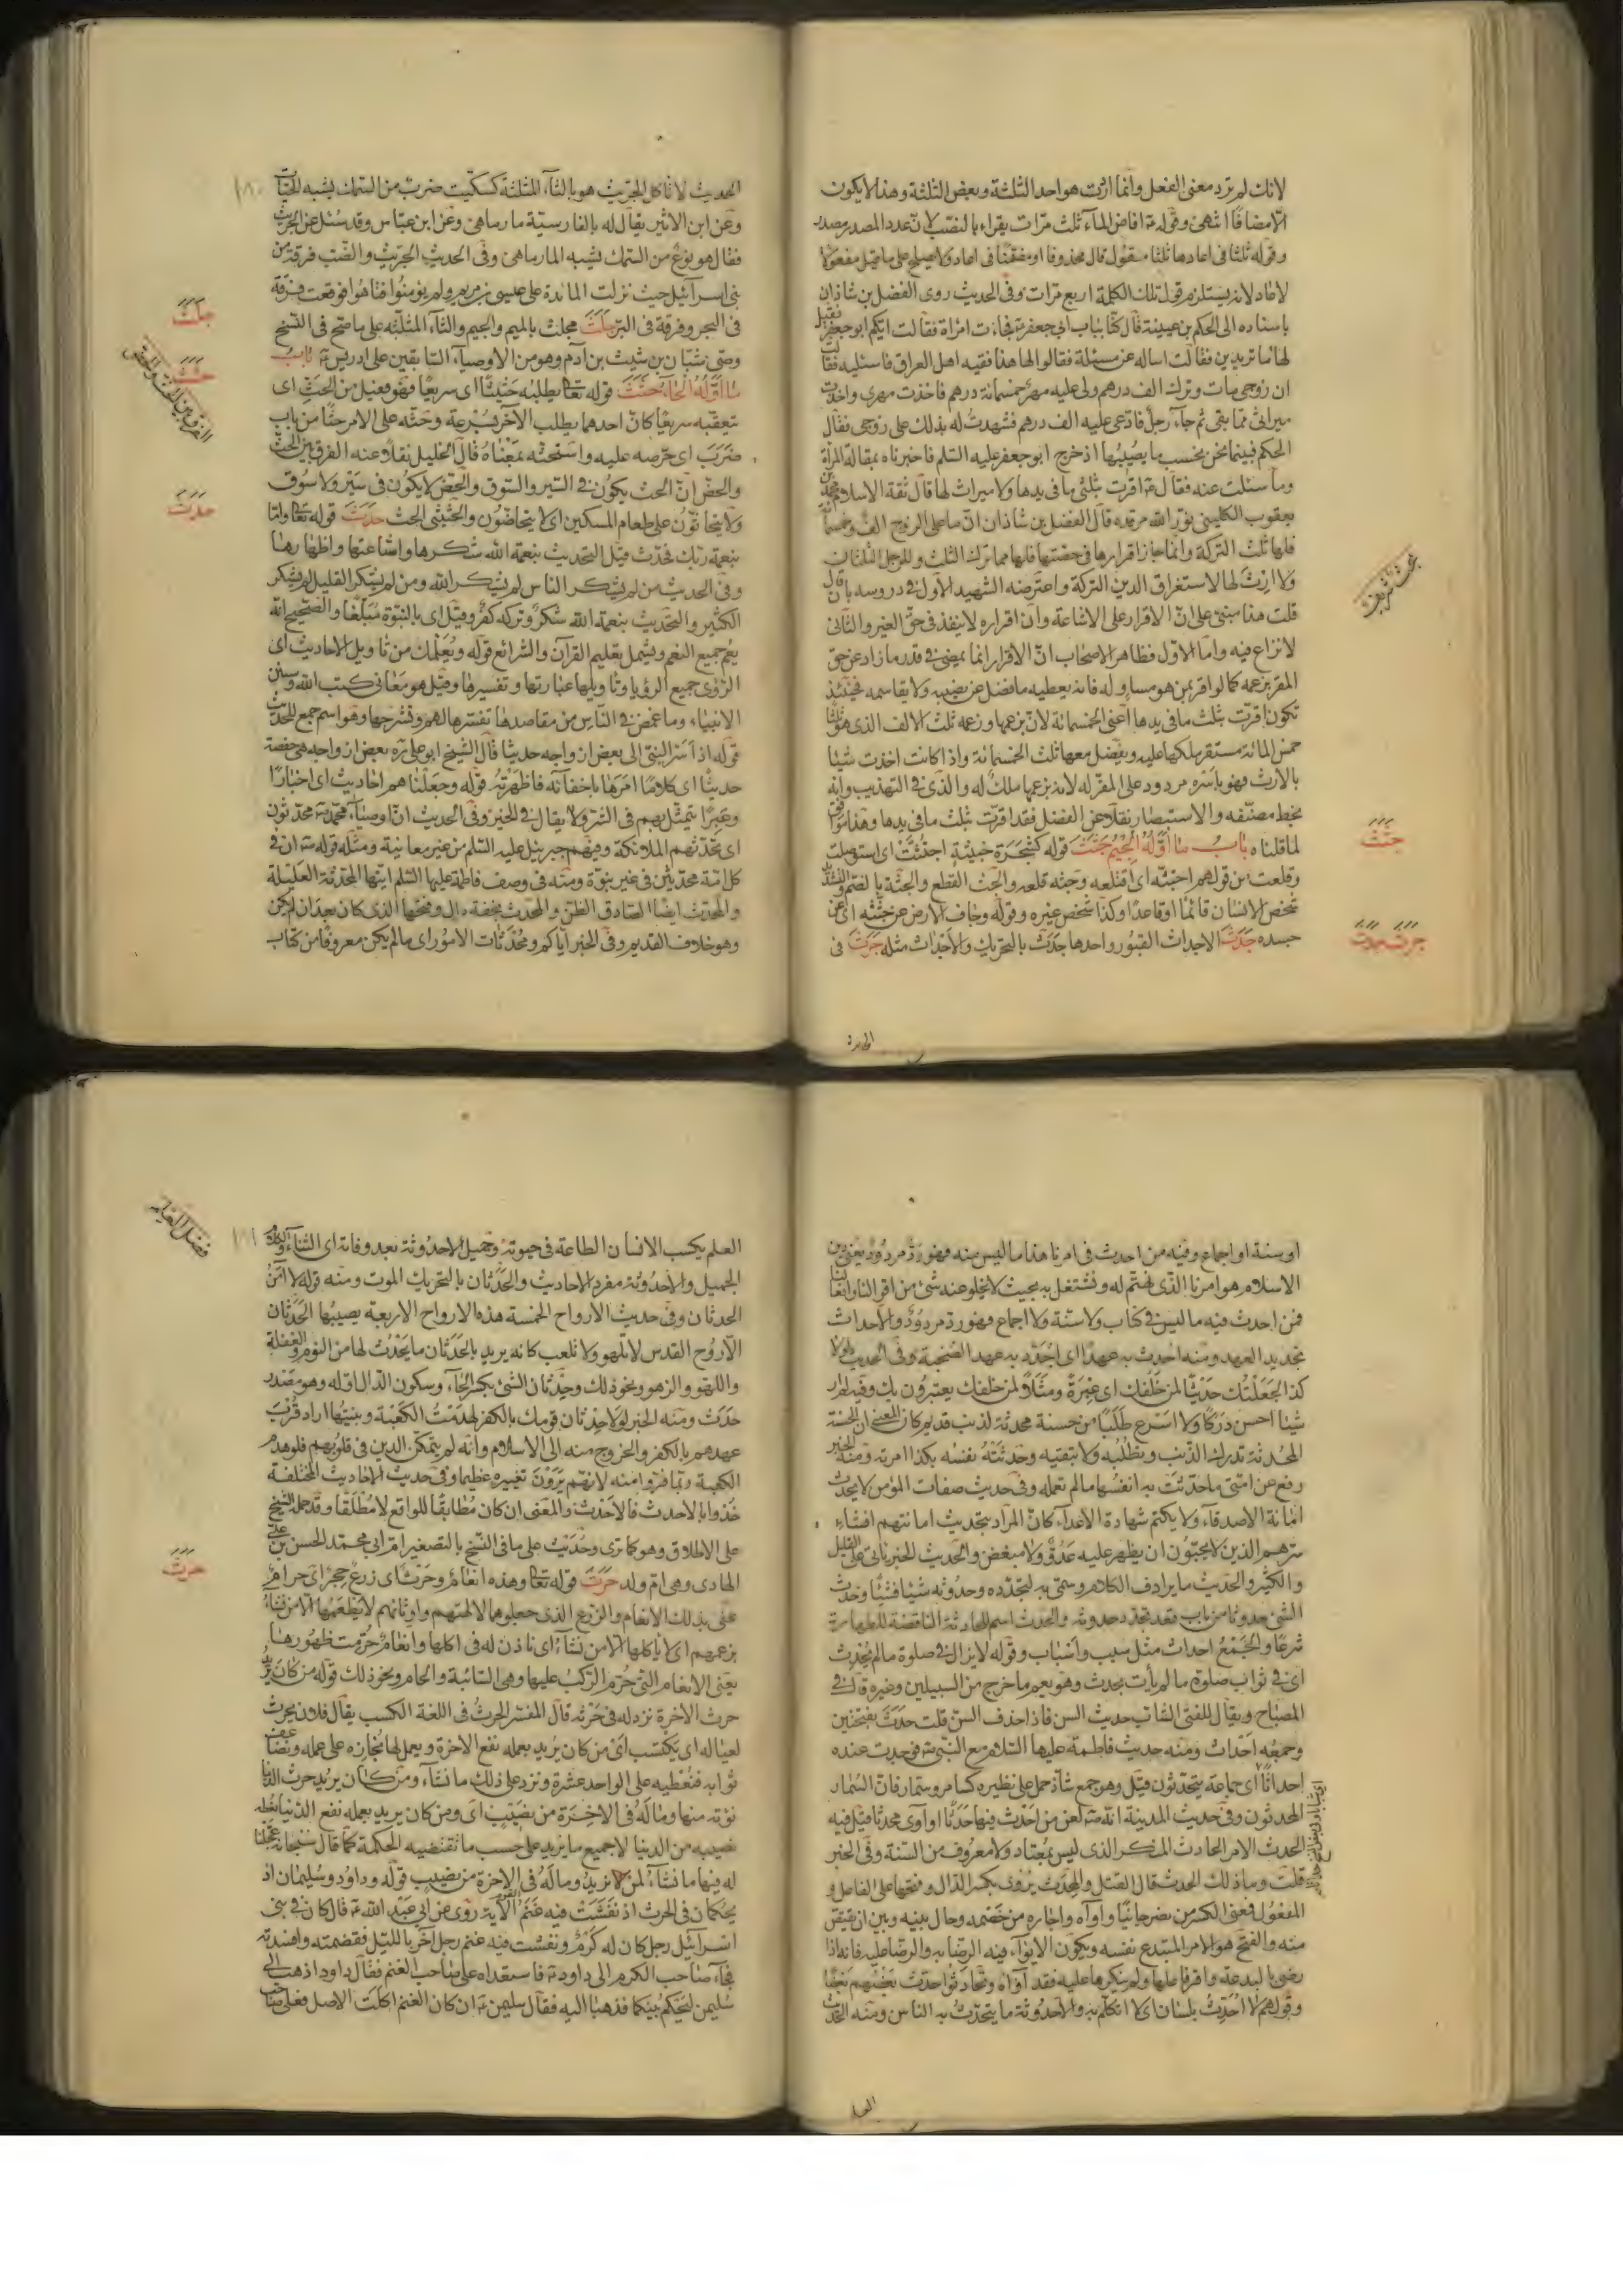 لانك لم ترد معنى الفعل وانما اردت هو احد الثلثة وبعض الثلثة وهذا لا يكون
الا مضافا انتهى وقوله ع افاض الماء ثلث مرات يقراء بالنصب لان عدد المصدر مصدر
وقوله ثلثا فى اعادها ثلثا مقول قال محذوفا او مفعولا فى اعاد ولا يصلح على ما قيل مفعولا
لاعاد لانه يستلزم قول تلك الكلمة اربع مرات وفى الحديث روى الفضل بن شاذان
باسناده الى الحكم بن عيينة قال كنا بباب ابى جعفر ع فجاءت امراة فقالت ايكم ابو جعفر فقيل
لها ما تريدين فقالت اساله عن مسئلة فقالوا لها هذا فقيه اهل العراق فاسئليه فقالت
ان زوجى مات وترك الف درهم ولى عليه مهر خمسمائة درهم فاخذت مهرى واخذت
ميراثى مما بقى ثم جاء رجل فادعى عليه الف درهم فشهدت له بذلك على زوجى فقال
الحكم فبينما نحن نحسب ما يصيبها اذ خرج ابو جعفر عليه السلم فاخبرناه بمقالة المراة
وما سئلت عنه فقال ع اقرت بثلثى ما فى يدها ولا ميراث لها قال ثقة الاسلام محمد بن
يعقوب الكلينى نور الله مرقده قال الفضل بن شاذان ان ما على الزوج الف وخمسمائة
فلها ثلث التركة وانما جاز اقرارها فى حصتها فلها مما ترك الثلث وللرجل الثلثان
ولا ارث لها لاستغراق الدين التركة واعترضه الشهيد الاول فى دروسه بان قال
قلت هذا مبنى على ان الاقرار على الاشاعة وان اقراره لا ينفذ فى حق الغير والثانى
لا نزاع فيه واما الاول فظاهر الاصحاب ان الاقرار انما يمضى فى قدر ما زاد عن حق
المقر بزعمه كما لو اقر بمن هو مساو له فانه يعطيه ما فضل عن نصيبه ولا يقاسمه فحينئذ
تكون اقرت بثلث ما فى يدها اعنى الخمسمائة لان بزعمها وزعمه ثلث الالف الذى هو ثلثا
خمس المائة مستقر ملكها عليه ويفضل معها ثلث الخمسمائة واذا كانت اخذت شيئا
بالارث فهو باسره مردود على المقر له لانه بزعمها ملك له والذى فى التهذيب وانه
بخط مصنفه والاستبصار نقلا عن الفضل فقد اقرت بثلث ما فى يدها وهذا موافق
لما قلناه باب ما اوله الجيم جثث قوله كشجرة خبيثة اجتثت اى استوصلت
وقلعت من قولهم اجتثه اى اقتلعه وجثه قلعه والجث القطع والجثة بالضم والتشديد
شخص الانسان قائما او قاعدا وكذا شخص غيره وقوله وجاف الارض عن جثته اى عن
جسده جدث الاجداث القبور واحدها جدث بالتحريك والاجداث مثله جرث فى
بحث شريف
جثث
جرث جدث
الحديث لا تاكل الجريث هو بالثاء المثلثة كسكيت ضرب من السمك يشبه الحيات
وعن ابن الاثير يقال له بالفارسية مارماهى وعن ابن عباس وقد سئل عن الجريث
فقال هو نوع من السمك يشبه المارماهى وفى الحديث الجريث والضب فرقة من
بنى اسرائيل حيث نزلت المائدة على عيسى بن مريم ولم يؤمنوا فتاهوا فوقعت فرقة
فى البحر وفرقة فى البر جلث مجلث بالميم والجيم والثاء المثلثة على ما صح فى النسخ
وصى شبان بن شيث بن آدم وهو من الاوصياء السابقين على ادريس ع باب
ما اوله الحاء حثث قوله تعالى يطلبه حثيثا اى سريعا فهو فعيل من الحث اى
تعقبه سريعا كان احدهما يطلب الآخر بسرعة وحثه على الامر حثا من باب
ضرب اى حرصه عليه واستحثه بمعناه قال الخليل نقلا عنه الفرق بين الحث
والحض ان الحث يكون فى السير والسوق والحض لا يكون فى سير ولا سوق
ولا يتحاثون على طعام المسكين اى لا يتحاضون والحثيثى الحث حدث قوله تعالى واما
بنعمة ربك فحدث قيل التحديث بنعمة الله شكرها واشاعتها واظهارها
وفى الحديث من لم يشكر الناس لم يشكر الله ومن لم يشكر القليل لم يشكر
الكثير والتحديث بنعمة الله شكر وتركه كفر وقيل اى بالنبوة مبلغا والصحيح انه
يعم جميع النعم ويشمل تعليم القرآن والشرائع قوله ويعلمك من تاويل الاحاديث اى
الرؤى جميع الرؤيا وتاويلها عبارتها وتفسيرها وقيل هو معانى كتب الله وسنن
الانبياء وما غمض فى الناس من مقاصدها تفسرها لهم وتشرحها وهو اسم جمع للحديث
قوله اذ اسر النبى الى بعض ازواجه حديثا قال الشيخ ابو على ره بعض ازواجه هى حفصة
حديثا اى كلاما امرها باخفائه فاظهرته قوله وجعلناهم احاديث اى اخبارا
وعبرا يتمثل بهم فى الشر ولا يقال فى الخير وفى الحديث ان اوصياء محمد ص محدثون
اى تحدثهم الملائكة وفيهم جبرئيل عليه السلم من غير معاينة ومثله قوله ص ان فى
كل امة محدثين فى غير نبوة ومنه فى وصف فاطمة عليها السلم ايتها المحدثة العليلة
والمحدث ايضا الصادق الظن والمحدث بخفة دال وفتحها الذى كان بعد ان لم يكن
وهو خلاف القديم وفى الخبر اياكم ومحدثات الامور اى ما لم يكن معروفا من كتاب
١٨٠
جلث
حثث
الفرق بين الحث والحض
حدث
او سنة او اجماع وفيه من احدث فى امرنا هذا ما ليس منه فهو رد مردود يعنى دين
الاسلام هو امرنا الذى نهتم له ونشتغل به بحيث لا يخلو عنه شئ من اقوالنا وافعالنا
فمن احدث فيه ما ليس فى كتاب ولا سنة ولا اجماع فهو رد مردود والاحداث
تجديد العهد ومنه احدث به عهدا اى اجدد به عهد الصحبة وفى الحديث لولا
كذا لجعلتك حديثا لمن خلفك اى عبرة ومثلا لمن خلفك يعتبرون بك وفيه لم ار
شيئا احسن دركا ولا اسرع طلبا من حسنة محدثة لذنب قديم كان المعنى ان الحسنة
المحدثة تدرك الذنب وتطلبه ولا تبقيه وحدثته نفسه بكذا امرته ومنه الخبر
رفع عن امتى ما حدثت به انفسها ما لم تعمله وفى حديث صفات المؤمن لا يحدث
امانة الاصدقاء ولا يكتم شهادة الاعداء كان المراد بتحديث امانتهم افشاء
سرهم الذين لا يحبون ان يظهر عليه عدو ولا مبغض والحديث الخبر ياتى على القليل
والكثير والحديث ما يرادف الكلام وسمى به لتجدده وحدوثه شيئا فشيئا وحدث
الشئ حدوثا من باب قعد تجدد حدوثه والحدث اسم للحادثة الناقضة للطهارة
شرعا والجمع احداث مثل سبب واسباب وقوله لا يزال فى صلوة ما لم يحدث
اى فى ثواب صلوة ما لم يأت بحدث وهو يعم ما خرج من السبيلين وغيره قال فى
المصباح ويقال للفتى الشاب حديث السن فاذا حذف السن قلت حدث بفتحتين
وجمعه احداث ومنه حديث فاطمة عليها السلام مع النبى ص فوجدت عنده
احداثا اى جماعة يتحدثون قيل وهو جمع شاذ حمل على نظيره كسامر وسمار فان السمار
المحدثون وفى حديث المدينة انه ص لعن من احدث فيها حدثا او آوى محدثا قيل فيه
الحدث الامر الحادث المنكر الذى ليس بمعتاد ولا معروف من السنة وفى الخبر
قلت وما ذلك الحدث قال القتل والمحدث يروى بكسر الدال وفتحها على الفاعل و
المفعول فمعنى الكسر من نصر جانيا وآواه واجاره من خصمه وحال بينه وبين ان يقتص
منه والفتح هو الامر المبتدع نفسه ويكون الايواء فيه الرضا به والرضا عليه فانه اذا
رضى بالبدعة واقر فاعلها ولم ينكرها عليه فقد آواه وتحادثوا حدث بعضهم بعضا
وقولهم لا احدث بلسان اى لا اتكلم به والاحدوثة ما يتحدث به الناس ومنه الحديث
العلم
العلم يكسب الانسان الطاعة فى حيوته وجميل الاحدوثة بعد وفاته اى الثناء والكلام
الجميل والاحدوثة مفرد الاحاديث والحدثان بالتحريك الموت ومنه قوله لا آمن
الحدثان وفى حديث الارواح الخمسة هذه الارواح الاربعة يصيبها الحدثان
الا روح القدس لا تلهو ولا تلعب كانه يريد بالحدثان ما يحدث لها من النوم والغفلة
واللهو والزهو ونحو ذلك وحدثان الشئ بكسر الحاء وسكون الدال اوله وهو مصدر
حدث ومنه الخبر لولا حدثان قومك بالكفر لهدمت الكعبة وبنيتها اراد قرب
عهدهم بالكفر والخروج منه الى الاسلام وانه لم يتمكن الدين فى قلوبهم فلو هدم
الكعبة ربما فروا منه لانهم يرون تغييره عظيما وفى حديث الاحاديث المختلفة
خذوا بالاحدث فالاحدث والمعنى ان كان مطابقا للواقع لا مطلقا وقد حمله الشيخ
على الاطلاق وهو كما ترى وحديث على ما فى النسخ بالتصغير ام ابى محمد الحسن بن على
الهادى وهى ام ولد حرث قوله تعالى وهذه انعام وحرث اى زرع حجر اى حرام
عنى بذلك الانعام والزرع الذى جعلوهما لالهتهم واوثانهم لا يطعمها الا من نشاء
بزعمهم اى لا ياكلها الا من نشاء اى ناذن له فى اكلها وانعام حرمت ظهورها
يعنى الانعام التى حرم الركب عليها وهى السائبة والحام ونحو ذلك قوله من كان يريد
حرث الاخرة نزد له فى حرثه قال المفسر الحرث فى اللغة الكسب يقال فلان يحرث
لعياله اى يكتسب اى من كان يريد بعمله نفع الاخرة ويعمل لها نجازه على عمله ونضاعف
ثوابه فنعطيه على الواحد عشرة ونزد على ذلك ما نشاء ومن كان يريد حرث الدنيا
نؤته منها وما له فى الاخرة من نصيب اى ومن كان يريد بعمله نفع الدنيا نعطه
نصيبه من الدنيا لا جميع ما يريد على حسب ما تقتضيه الحكمة كما قال سبحانه عجلنا
له فيها ما نشاء لمن نريد وما له فى الاخرة من نصيب قوله وداود وسليمان اذ
يحكمان فى الحرث اذ نفشت فيه غنم القوم الآية روى عن ابى عبد الله ع قال كان فى بنى
اسرائيل رجل كان له كرم ونفشت فيه غنم رجل آخر بالليل فقضمته وافسدته
فجاء صاحب الكرم الى داود ع فاستعداه على صاحب الغنم فقال داود اذهب الى
سليمن ليحكم بينكما فذهبا اليه فقال سليمن ع ان كان الغنم اكلت الاصل فعلى صاحب
١٨١
حرث